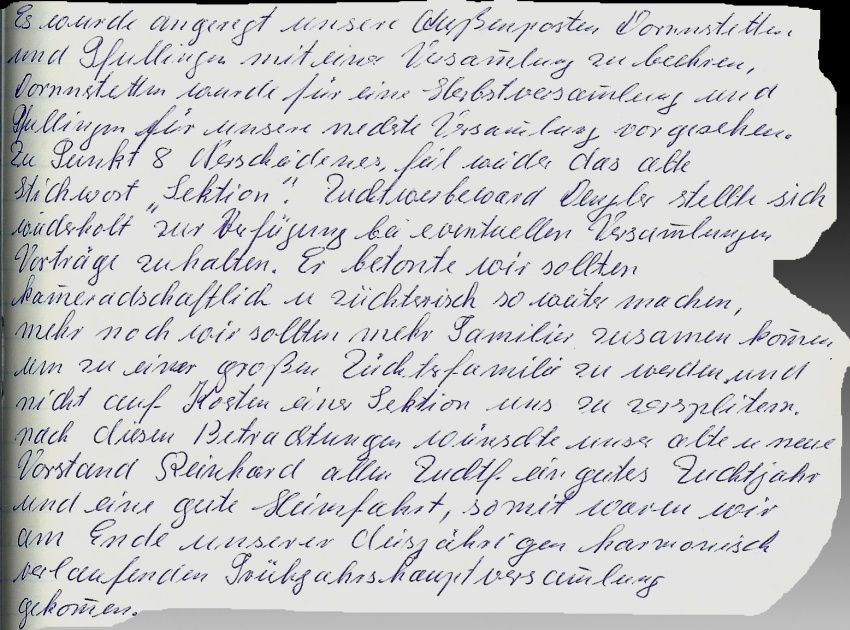 Es wurde angeregt unsere Außenposten Dornnstetten
und Pfullingen mit einer Versam̄lung zu beehren,
Dornnstetten wurde für eine Herbstversam̄lung und
Pfullingen für unsere nechste Versam̄lung vorgesehen.
Zu Punkt 8 Verschiedenes, fiel wieder das alte
Stichwort „Sektion". Zuchtwerbeward Dengler stellte sich
wiederholt zur Verfügung bei eventuellen Versam̄lungen
Vorträge zuhalten. Er betonte wir sollten
kam̄eradschaftlich u züchterisch so weiter machen,
mehr noch wir sollten mehr Familier zusamen kom̄en
um zu einer großen Züchterfamilie zu werden, und
nicht auf Kosten einer Sektion uns zu zersplitern.
nach diesen Betrachtungen wünschte unser alte u neue
Vorstand Reinhard allen Zuchtf. ein gutes Zuchtjahr
und eine gute Heimfahrt, somit waren wir
am Ende unserer diesjährigen harmonisch
verlaufenden Frühjahrshauptversam̄lung
gekom̄en.